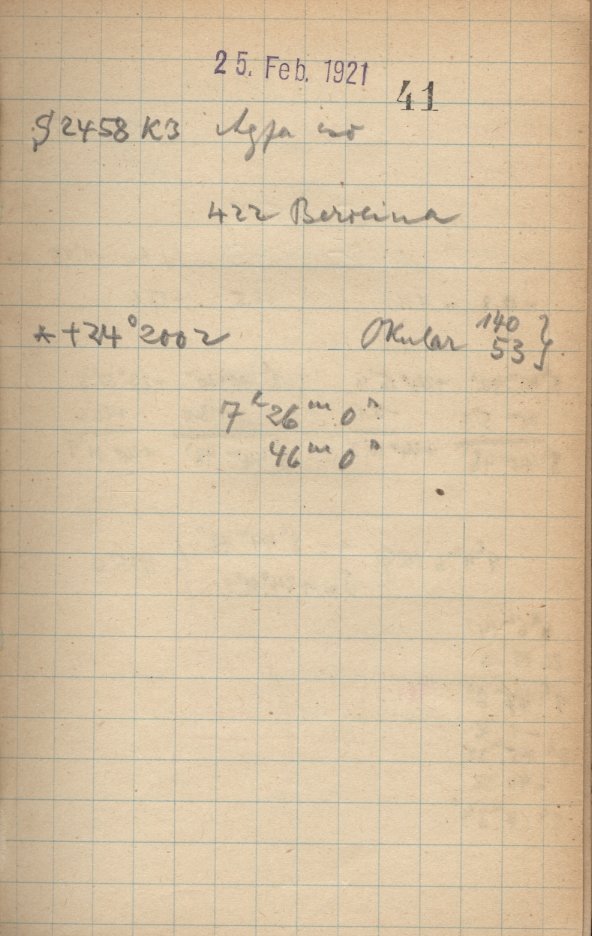 25. Feb. 1921
41
2458 K3 Agfa
422 Berolina
* +24° 2002 Okular 140 } 53
7h 26m 0s
46m 0s